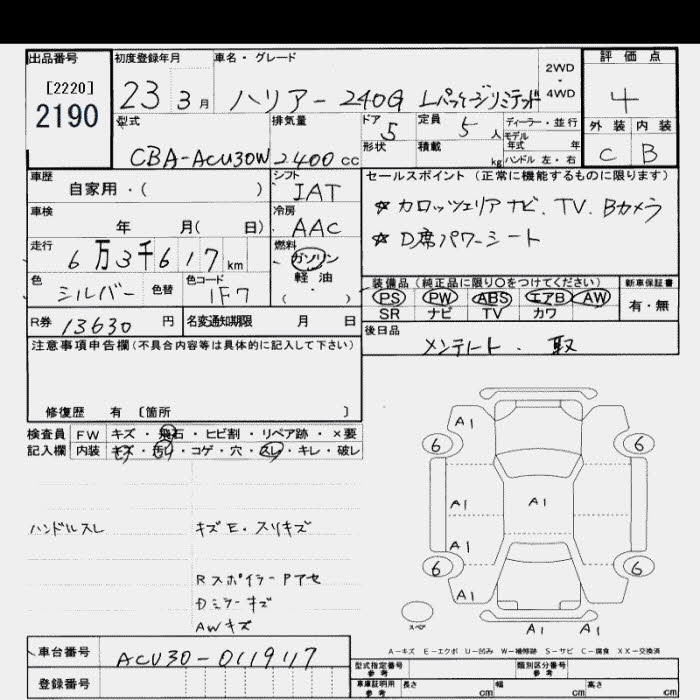 出品番号
[2220]
2190
初度登録年月
23 3月
車名・グレード
ハリアー 240G Lパッケージリミテッド
2WD
・
4WD
評価点
4
外装 内装
C B
型式
CBA-ACU30W
排気量
2400cc
ドア 5
形状
定員 5人
積載 kg
ディーラー・並行
モデル年式 年
ハンドル 左・右
車歴
自家用・( )
シフト
IAT
車検
年 月( 日)
冷房
AAC
走行
6万3千617km
燃料
ガソリン
軽・油
( )
色
シルバー
色替
色コード
1F7
セールスポイント(正常に機能するものに限ります)
☆カロッツェリアナビ.TV.Bカメラ
☆D席パワーシート
装備品(純正品に限り○をつけてください)
PS PW ABS エアB AW
SR ナビ TV カワ
新車保証書
有・無
R券 13630円
名変通知期限 月 日
後日品
メンテノート・取
注意事項申告欄(不具合内容等は具体的に記入して下さい)
修復歴 有 〔箇所 〕
検査員
記入欄
FW キズ・飛石・ヒビ割・リペア跡・×要
内装 キズ・汚れ・コゲ・穴・スレ・キレ・破レ
ハンドルスレ
キズE・スリキズ
RスポイラーPアセ
Dミラーキズ
AWキズ
A1
6 6
A1 A1
A1
6 6
A1
スペア
A1 A1
A-キズ E-エクボ U-凹み W-補修跡 S-サビ C-腐食 XX-交換済
車台番号
ACU30-0119117
登録番号
型式指定番号
参考
類別区分番号
参考
車庫証明用
参考
長さ cm
幅 cm
高さ cm